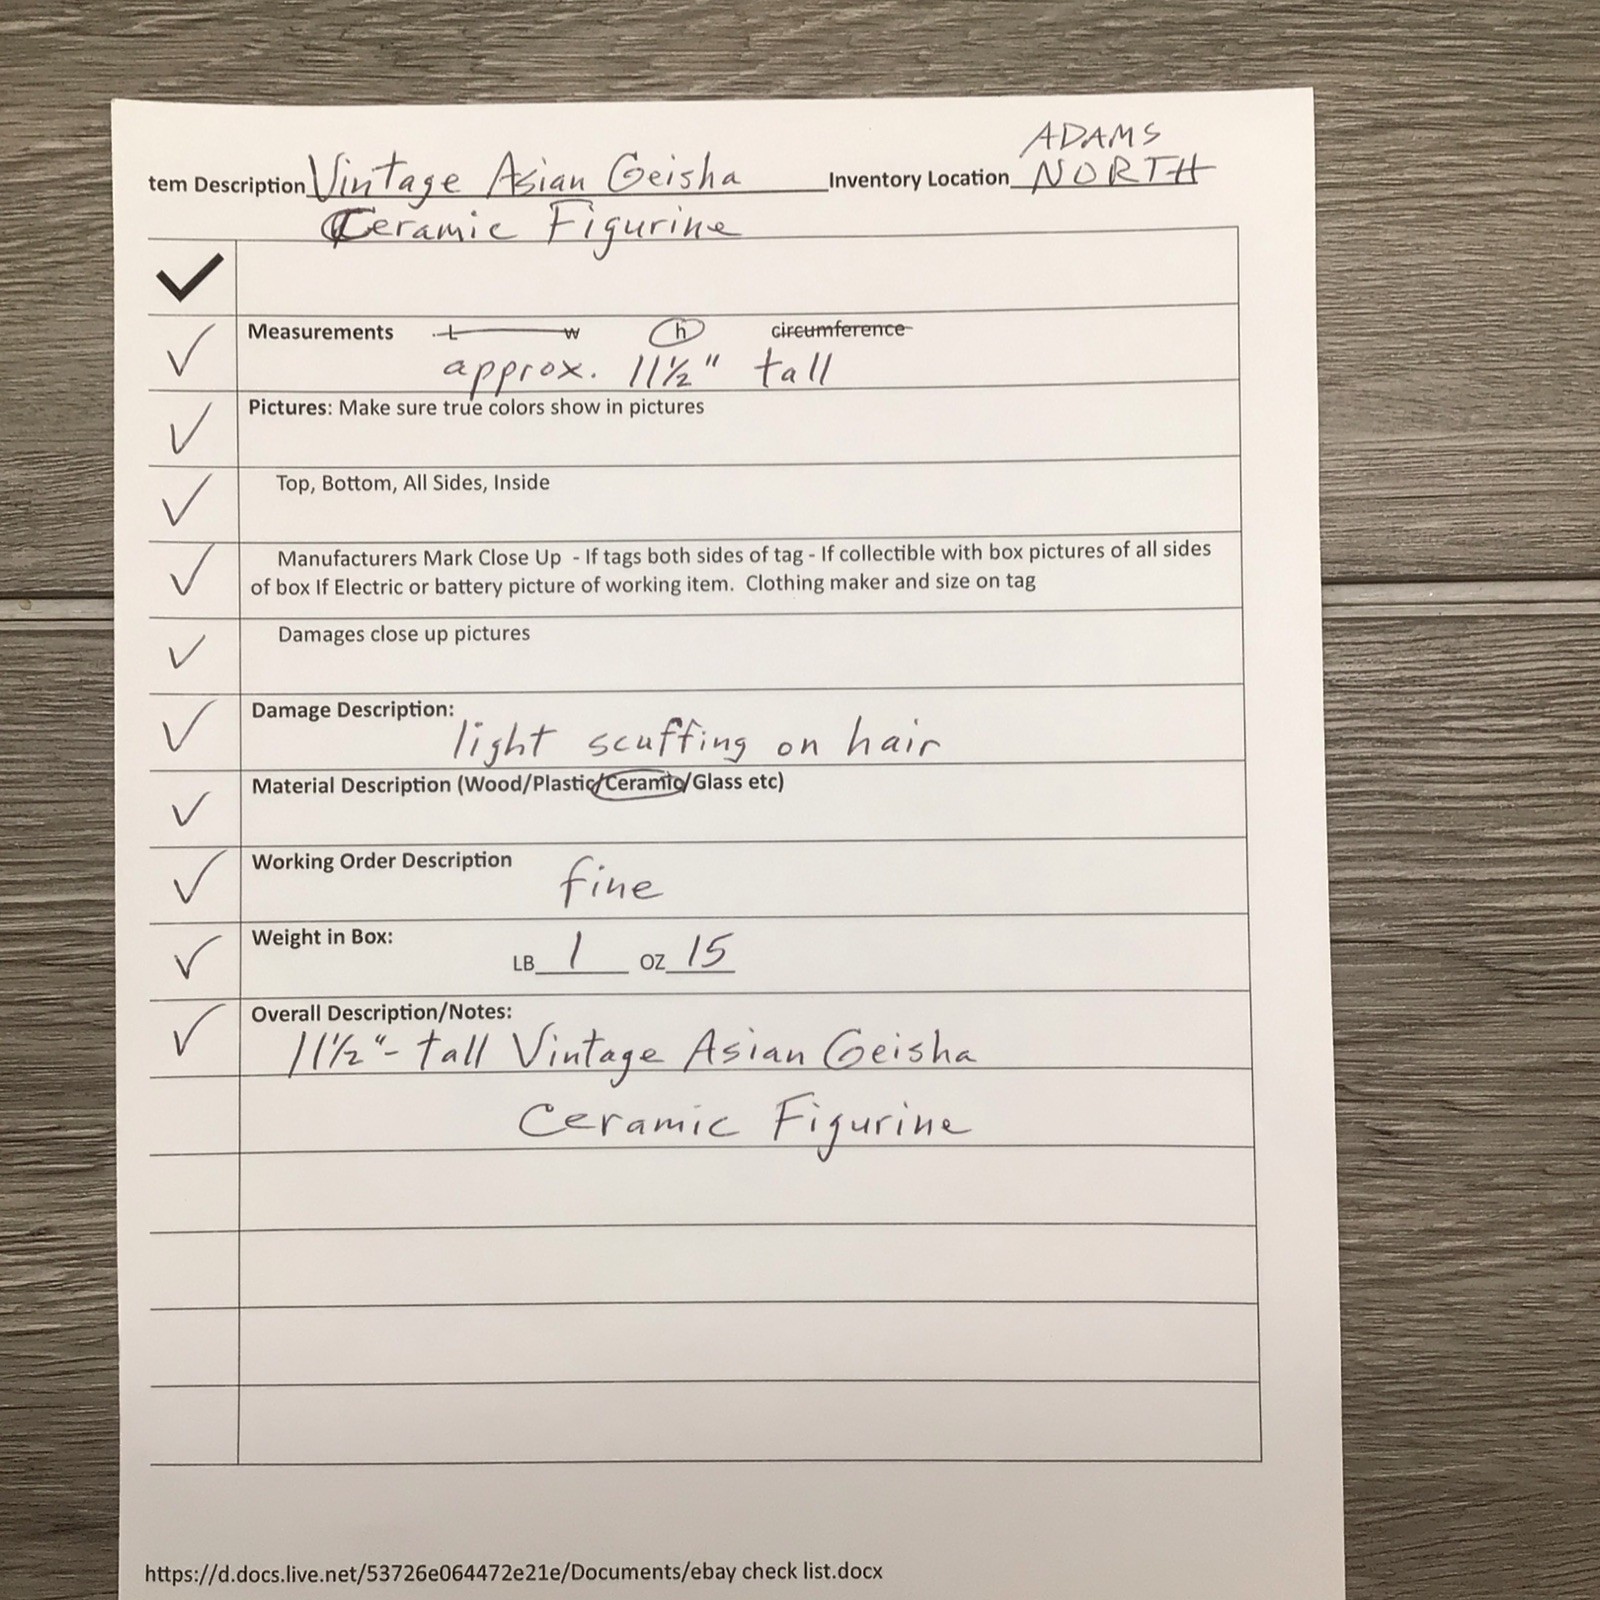 ADAMS
tem Description Vintage Asian Geisha Inventory Location NORTH
Ceramic Figurine
Measurements L W h circumference
approx. 11½" tall
Pictures: Make sure true colors show in pictures
Top, Bottom, All Sides, Inside
Manufacturers Mark Close Up - If tags both sides of tag - If collectible with box pictures of all sides
of box If Electric or battery picture of working item. Clothing maker and size on tag
Damages close up pictures
Damage Description:
light scuffing on hair
Material Description (Wood/Plastic/Ceramic/Glass etc)
Working Order Description
fine
Weight in Box:
LB 1 OZ 15
Overall Description/Notes:
11½"- tall Vintage Asian Geisha
Ceramic Figurine
https://d.docs.live.net/53726e064472e21e/Documents/ebay check list.docx